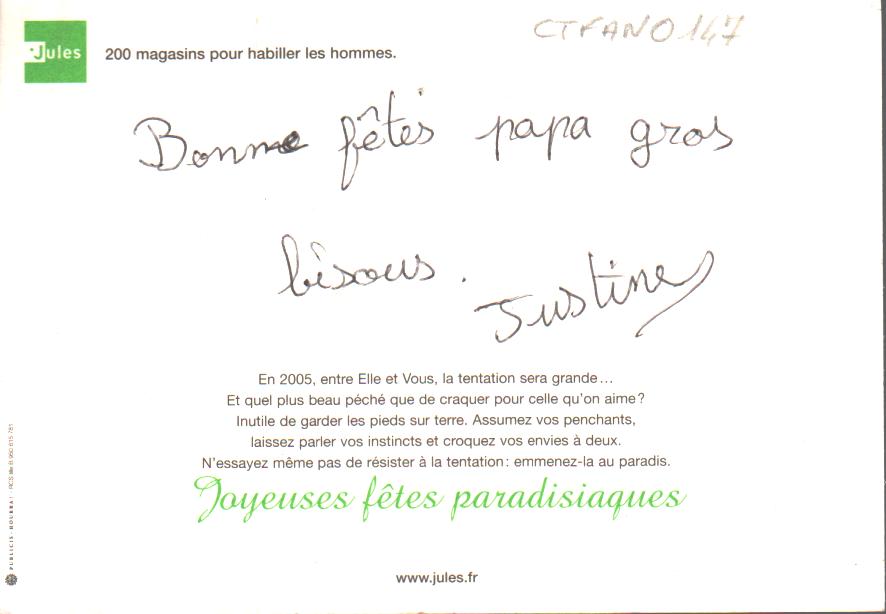 Jules
200 magasins pour habiller les hommes.
CTFANO147
Bonne fêtes papa gros
bisous.
Justine
En 2005, entre Elle et Vous, la tentation sera grande...
Et quel plus beau péché que de craquer pour celle qu'on aime?
Inutile de garder les pieds sur terre. Assumez vos penchants,
laissez parler vos instincts et croquez vos envies à deux.
N'essayez même pas de résister à la tentation: emmenez-la au paradis.
Joyeuses fêtes paradisiaques
www.jules.fr
PUBLICIS